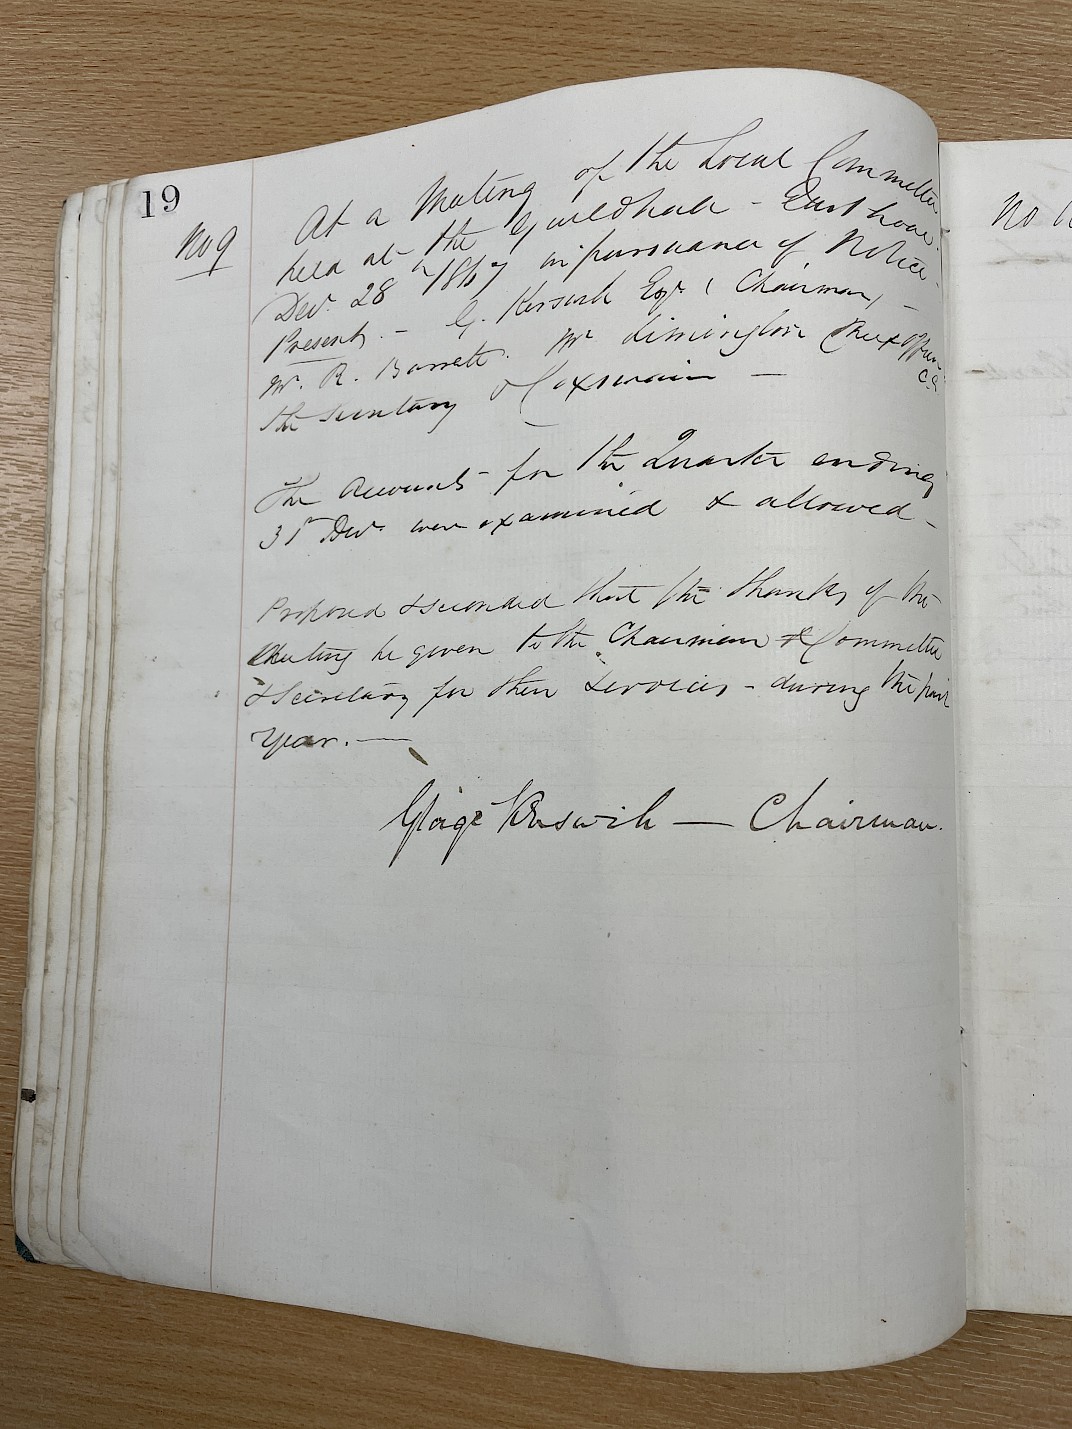 19
No 9
At a Meeting of the Local Committee
held at the Guildhall - East Looe
Decr. 28 1867 in pursuance of Notice -
Present - G. Kerswill Esqr. (Chairman) -
Mr. R. Barrett. Mr Limington Chief Officer
C.G
the Secretary & Coxswain -
The Accounts for the Quarter ending
31st Decr. were examined & allowed -
Proposed & seconded that the thanks of the
Meeting be given to the Chairman & Committee
& Secretary for their services - during the past
Year. -
George Kerswill - Chairman.
No